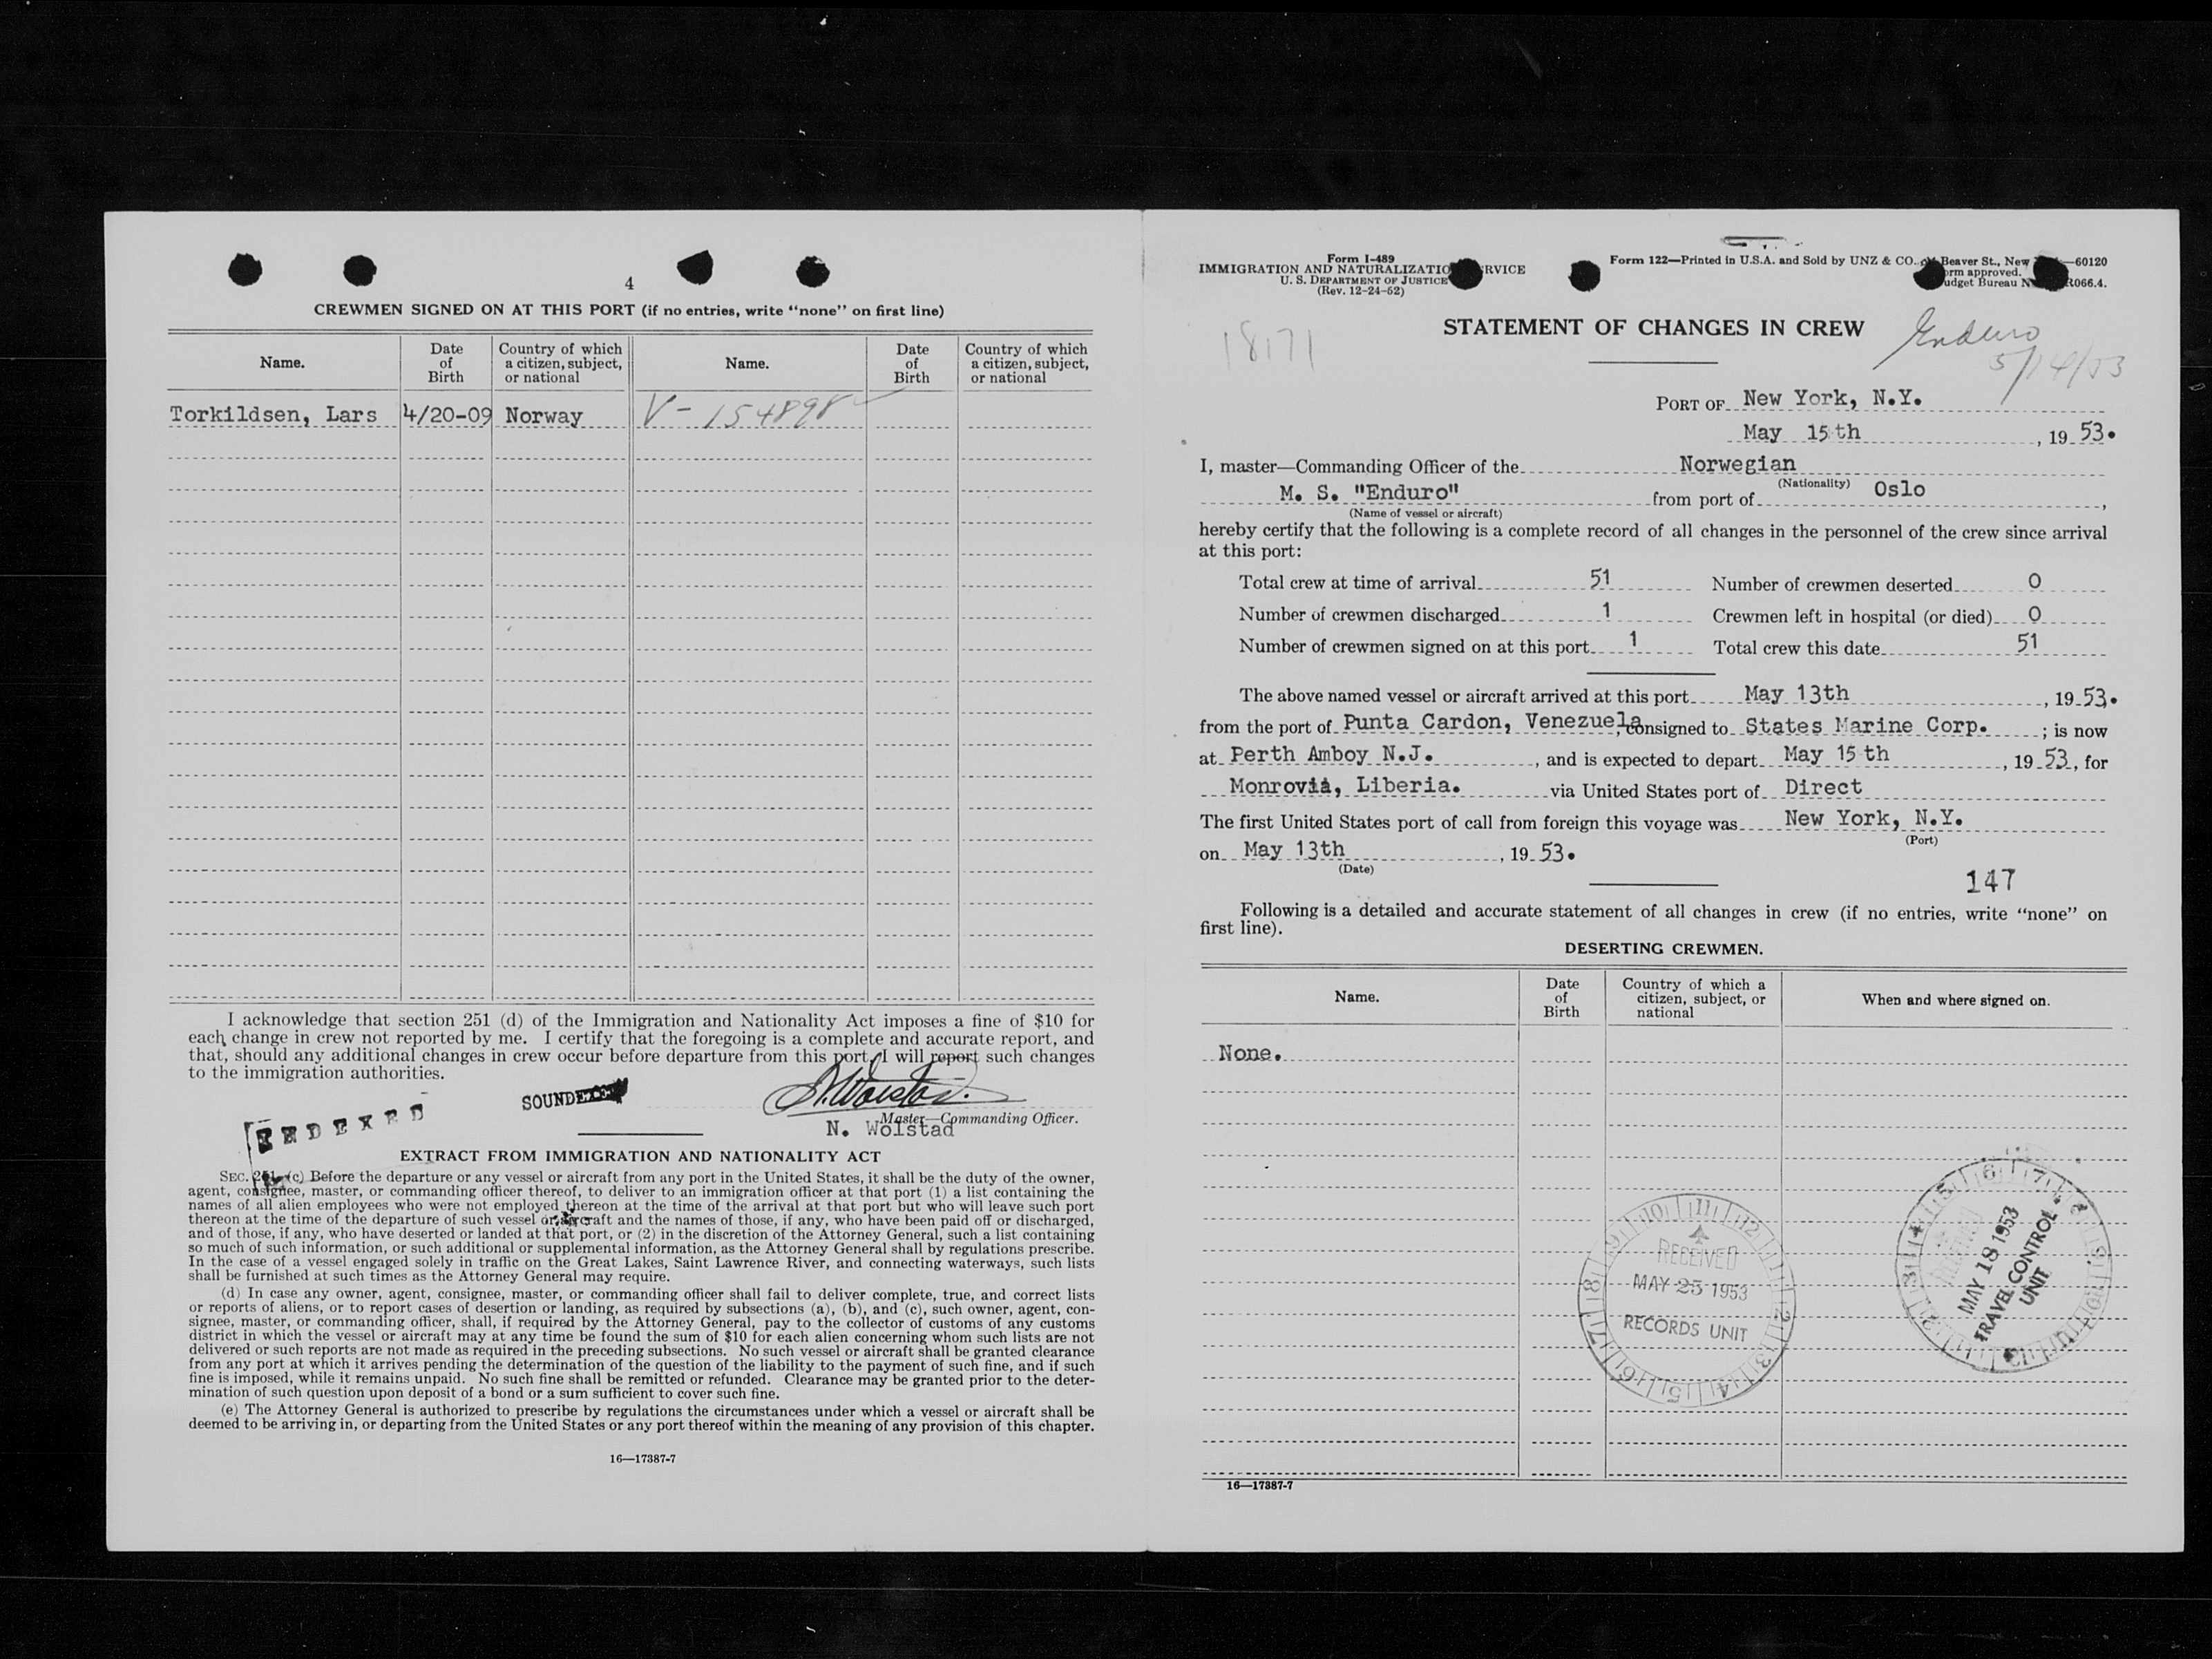 4
CREWMEN SIGNED ON AT THIS PORT (if no entries, write “none” on first line)
Name. Date of Birth Country of which a citizen, subject, or national Name. Date of Birth Country of which a citizen, subject, or national
Torkildsen, Lars 4/20-09 Norway V- 154898
I acknowledge that section 251 (d) of the Immigration and Nationality Act imposes a fine of $10 for
each change in crew not reported by me. I certify that the foregoing is a complete and accurate report, and
that, should any additional changes in crew occur before departure from this port, I will report such changes
to the immigration authorities.
SOUNDEXED
N. Wolstad.
Master—Commanding Officer.
N. Wolstad
INDEXED
EXTRACT FROM IMMIGRATION AND NATIONALITY ACT
SEC. (c) Before the departure or any vessel or aircraft from any port in the United States, it shall be the duty of the owner,
agent, consignee, master, or commanding officer thereof, to deliver to an immigration officer at that port (1) a list containing the
names of all alien employees who were not employed thereon at the time of the arrival at that port but who will leave such port
thereon at the time of the departure of such vessel or aircraft and the names of those, if any, who have been paid off or discharged,
and of those, if any, who have deserted or landed at that port, or (2) in the discretion of the Attorney General, such a list containing
so much of such information, or such additional or supplemental information, as the Attorney General shall by regulations prescribe.
In the case of a vessel engaged solely in traffic on the Great Lakes, Saint Lawrence River, and connecting waterways, such lists
shall be furnished at such times as the Attorney General may require.
(d) In case any owner, agent, consignee, master, or commanding officer shall fail to deliver complete, true, and correct lists
or reports of aliens, or to report cases of desertion or landing, as required by subsections (a), (b), and (c), such owner, agent, con-
signee, master, or commanding officer, shall, if required by the Attorney General, pay to the collector of customs of any customs
district in which the vessel or aircraft may at any time be found the sum of $10 for each alien concerning whom such lists are not
delivered or such reports are not made as required in the preceding subsections. No such vessel or aircraft shall be granted clearance
from any port at which it arrives pending the determination of the question of the liability to the payment of such fine, and if such
fine is imposed, while it remains unpaid. No such fine shall be remitted or refunded. Clearance may be granted prior to the deter-
mination of such question upon deposit of a bond or a sum sufficient to cover such fine.
(e) The Attorney General is authorized to prescribe by regulations the circumstances under which a vessel or aircraft shall be
deemed to be arriving in, or departing from the United States or any port thereof within the meaning of any provision of this chapter.
16—17387-7
Form I-489
IMMIGRATION AND NATURALIZATIO RVICE
U. S. DEPARTMENT OF JUSTICE
(Rev. 12-24-52)
Form 122—Printed in U.S.A. and Sold by UNZ & CO. Beaver St., New —60120
orm approved.
udget Bureau N R066.4.
18171
STATEMENT OF CHANGES IN CREW
Enduro
5/14/53
PORT OF New York, N.Y.
May 15th , 19 53.
I, master—Commanding Officer of the Norwegian
(Nationality)
M. S. "Enduro" from port of Oslo ,
(Name of vessel or aircraft)
hereby certify that the following is a complete record of all changes in the personnel of the crew since arrival
at this port:
Total crew at time of arrival 51 Number of crewmen deserted 0
Number of crewmen discharged 1 Crewmen left in hospital (or died) 0
Number of crewmen signed on at this port 1 Total crew this date 51
The above named vessel or aircraft arrived at this port May 13th , 19 53.
from the port of Punta Cardon, Venezuela, consigned to States Marine Corp. ; is now
at Perth Amboy N.J. , and is expected to depart May 15th , 19 53, for
Monrovia, Liberia. via United States port of Direct
The first United States port of call from foreign this voyage was New York, N.Y.
(Port)
on May 13th , 19 53.
(Date)
147
Following is a detailed and accurate statement of all changes in crew (if no entries, write “none” on
first line).
DESERTING CREWMEN.
Name. Date of Birth Country of which a citizen, subject, or national When and where signed on.
None.
RECEIVED
MAY 25 1953
RECORDS UNIT
MAY 18 1953
TRAVEL CONTROL
UNIT
16—17387-7